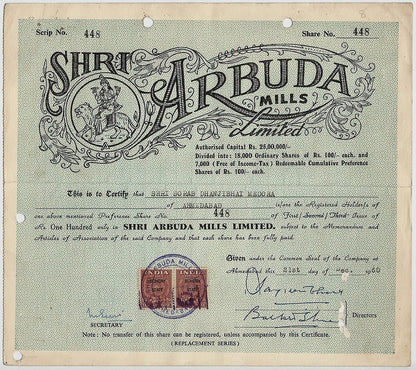 Scrip No. 448 Share No. 448
SHRI
ARBUDA
MILLS
Limited
Authorised Capital Rs. 25,00,000/-
Divided into: 18,000 Ordinary Shares of Rs. 100/- each. and
7,000 (Free of Income-Tax) Redeemable Cumulative Preference
Shares of Rs. 100/- each.
This is to Certify that SHRI SORAB DHANJIBHAI MEDORA
of AHMEDABAD is/are the Registered Holder/s of
one above mentioned Preference Share No. 448 of First/Second/Third Issue of
Rs. One Hundred only in SHRI ARBUDA MILLS LIMITED. subject to the Memorandum and
Articles of Association of the said Company and that each share has been fully paid.
Given under the Common Seal of the Company at
Ahmedabad this 21st day of Dec. 1960
ARBUDA MILLS
INDIA
Directors
SECRETARY
Note: No transfer of this share can be registered, unless accompanied by this Certificate.
(REPLACEMENT SERIES)